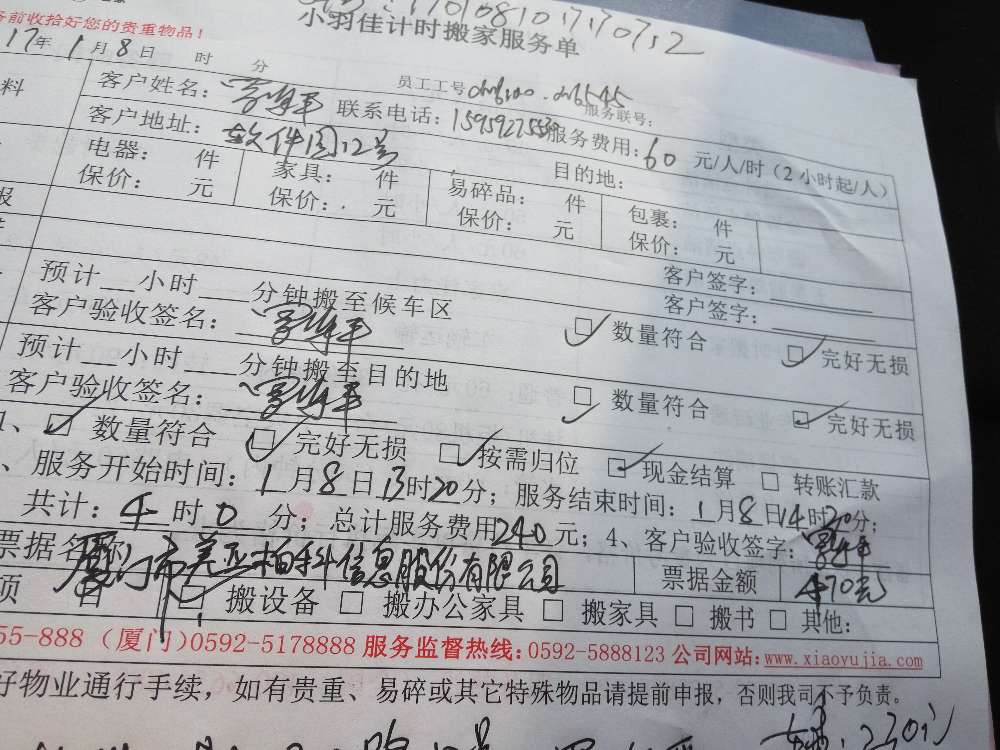 务前收拾好您的贵重物品！
小羽佳计时搬家服务单
17年1月8日 时 分
员工工号
服务联号：
料
客户姓名： 联系电话： 服务费用：60元/人/时（2小时起/人）
客户地址：软件园12号 目的地：
电器： 件 家具： 件 易碎品： 件 包裹： 件
保价： 元 保价： 元 保价： 元 保价： 元
报
客户签字：
预计 小时 分钟搬至候车区 客户签字：
客户验收签名： 数量符合 完好无损
预计 小时 分钟搬至目的地
客户验收签名： 数量符合 完好无损
、 数量符合 完好无损 按需归位 现金结算 转账汇款
、服务开始时间：1月8日13时20分；服务结束时间：1月8日14时 分；
共计：4时0分；总计服务费用240元；4、客户验收签字：
票据名称 厦门市美亚柏科信息股份有限公司 票据金额 470元
项目 搬设备 搬办公家具 搬家具 搬书 其他：
55-888（厦门）0592-5178888 服务监督热线：0592-5888123 公司网站：www.xiaoyujia.com
好物业通行手续，如有贵重、易碎或其它特殊物品请提前申报，否则我司不予负责。